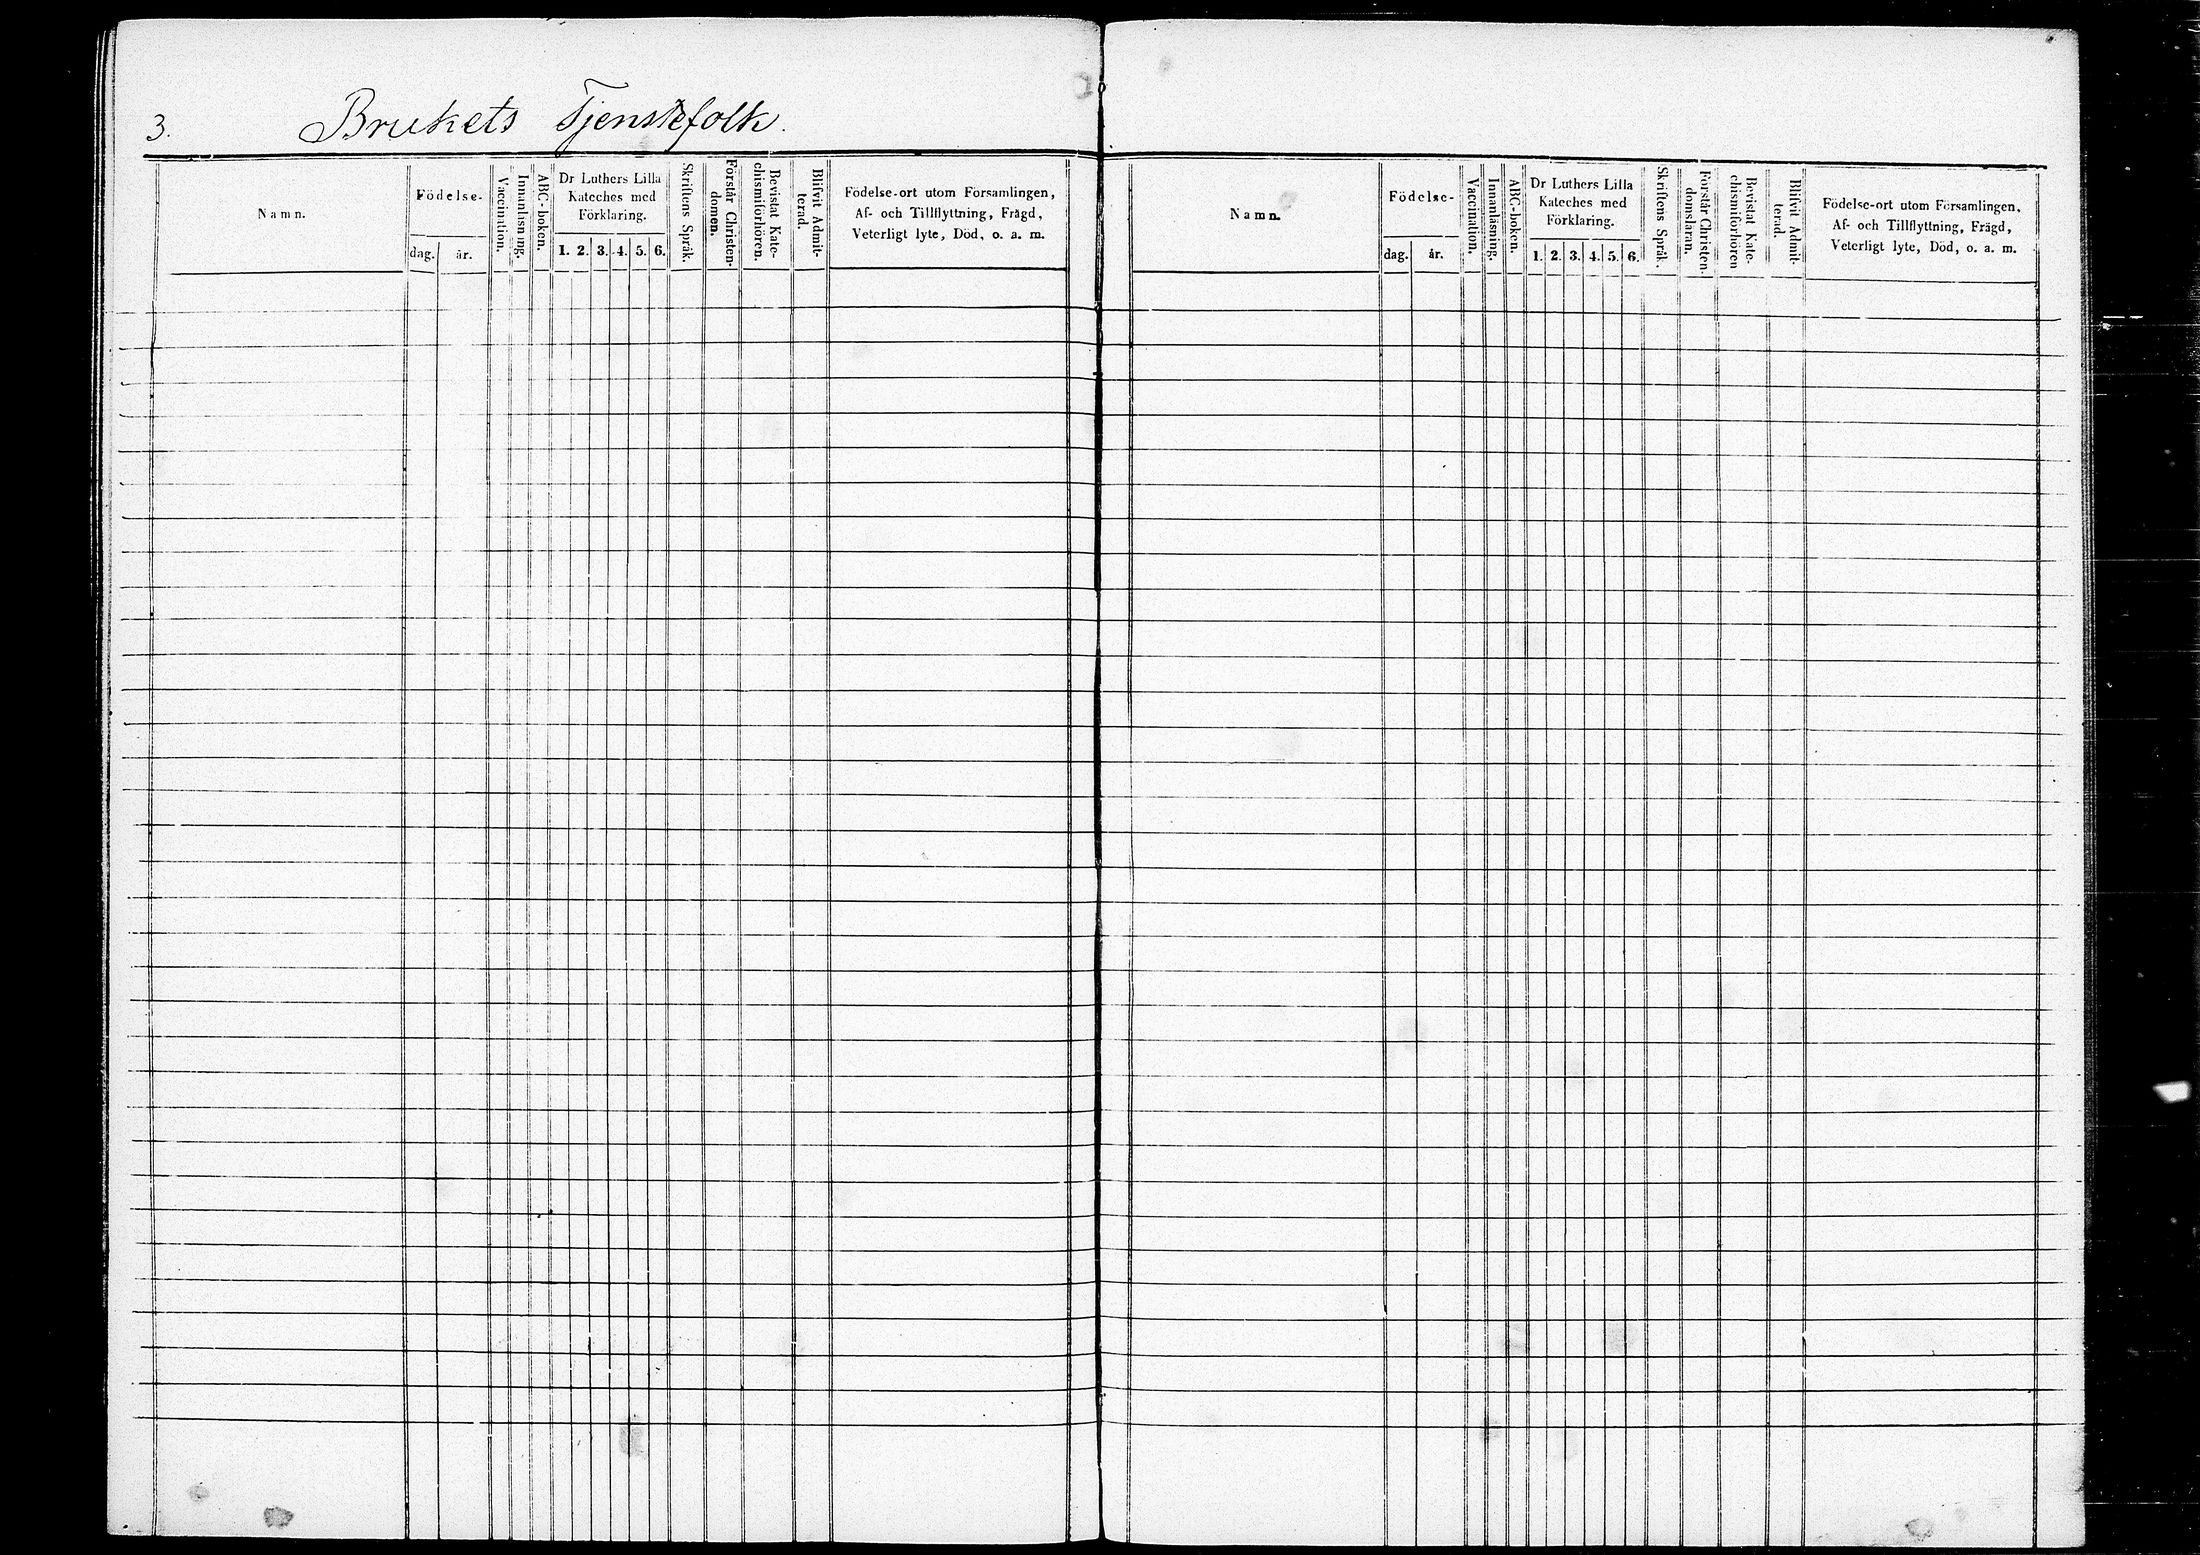 3. Brukets Tjenstefolk.
Namn.
Födelse-
dag. år.
Vaccination.
Innanläsning.
ABC-boken.
Dr Luthers Lilla
Kateches med
Förklaring.
1. 2. 3. 4. 5. 6.
Skriftens Språk.
Förstår Christen-
domen.
Bevistat Kate-
chismiförhören.
Blifvit Admit-
terad.
Födelse-ort utom Församlingen,
Af- och Tillflyttning, Frägd,
Veterligt lyte, Död, o. a. m.
Namn.
Födelse-
dag. år.
Vaccination.
Innanläsning.
ABC-boken.
Dr Luthers Lilla
Kateches med
Förklaring.
1. 2. 3. 4. 5. 6.
Skriftens Språk.
Förstår Christen-
domsläran.
Bevistat Kate-
chismiförhören
Blifvit Admit-
terad.
Födelse-ort utom Församlingen,
Af- och Tillflyttning, Frägd,
Veterligt lyte, Död, o. a. m.